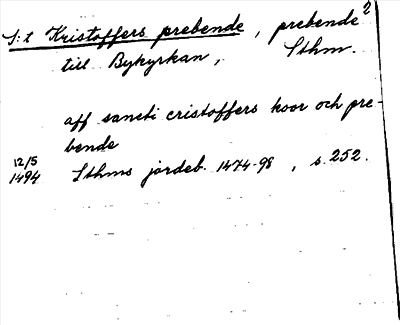 S:t Kristoffers prebende, prebende 2
till Bykyrkan, Sthm.
aff sancti cristoffers koor och pre-
bende
12/5
1494 Sthms jordeb. 1474-98, s. 252.